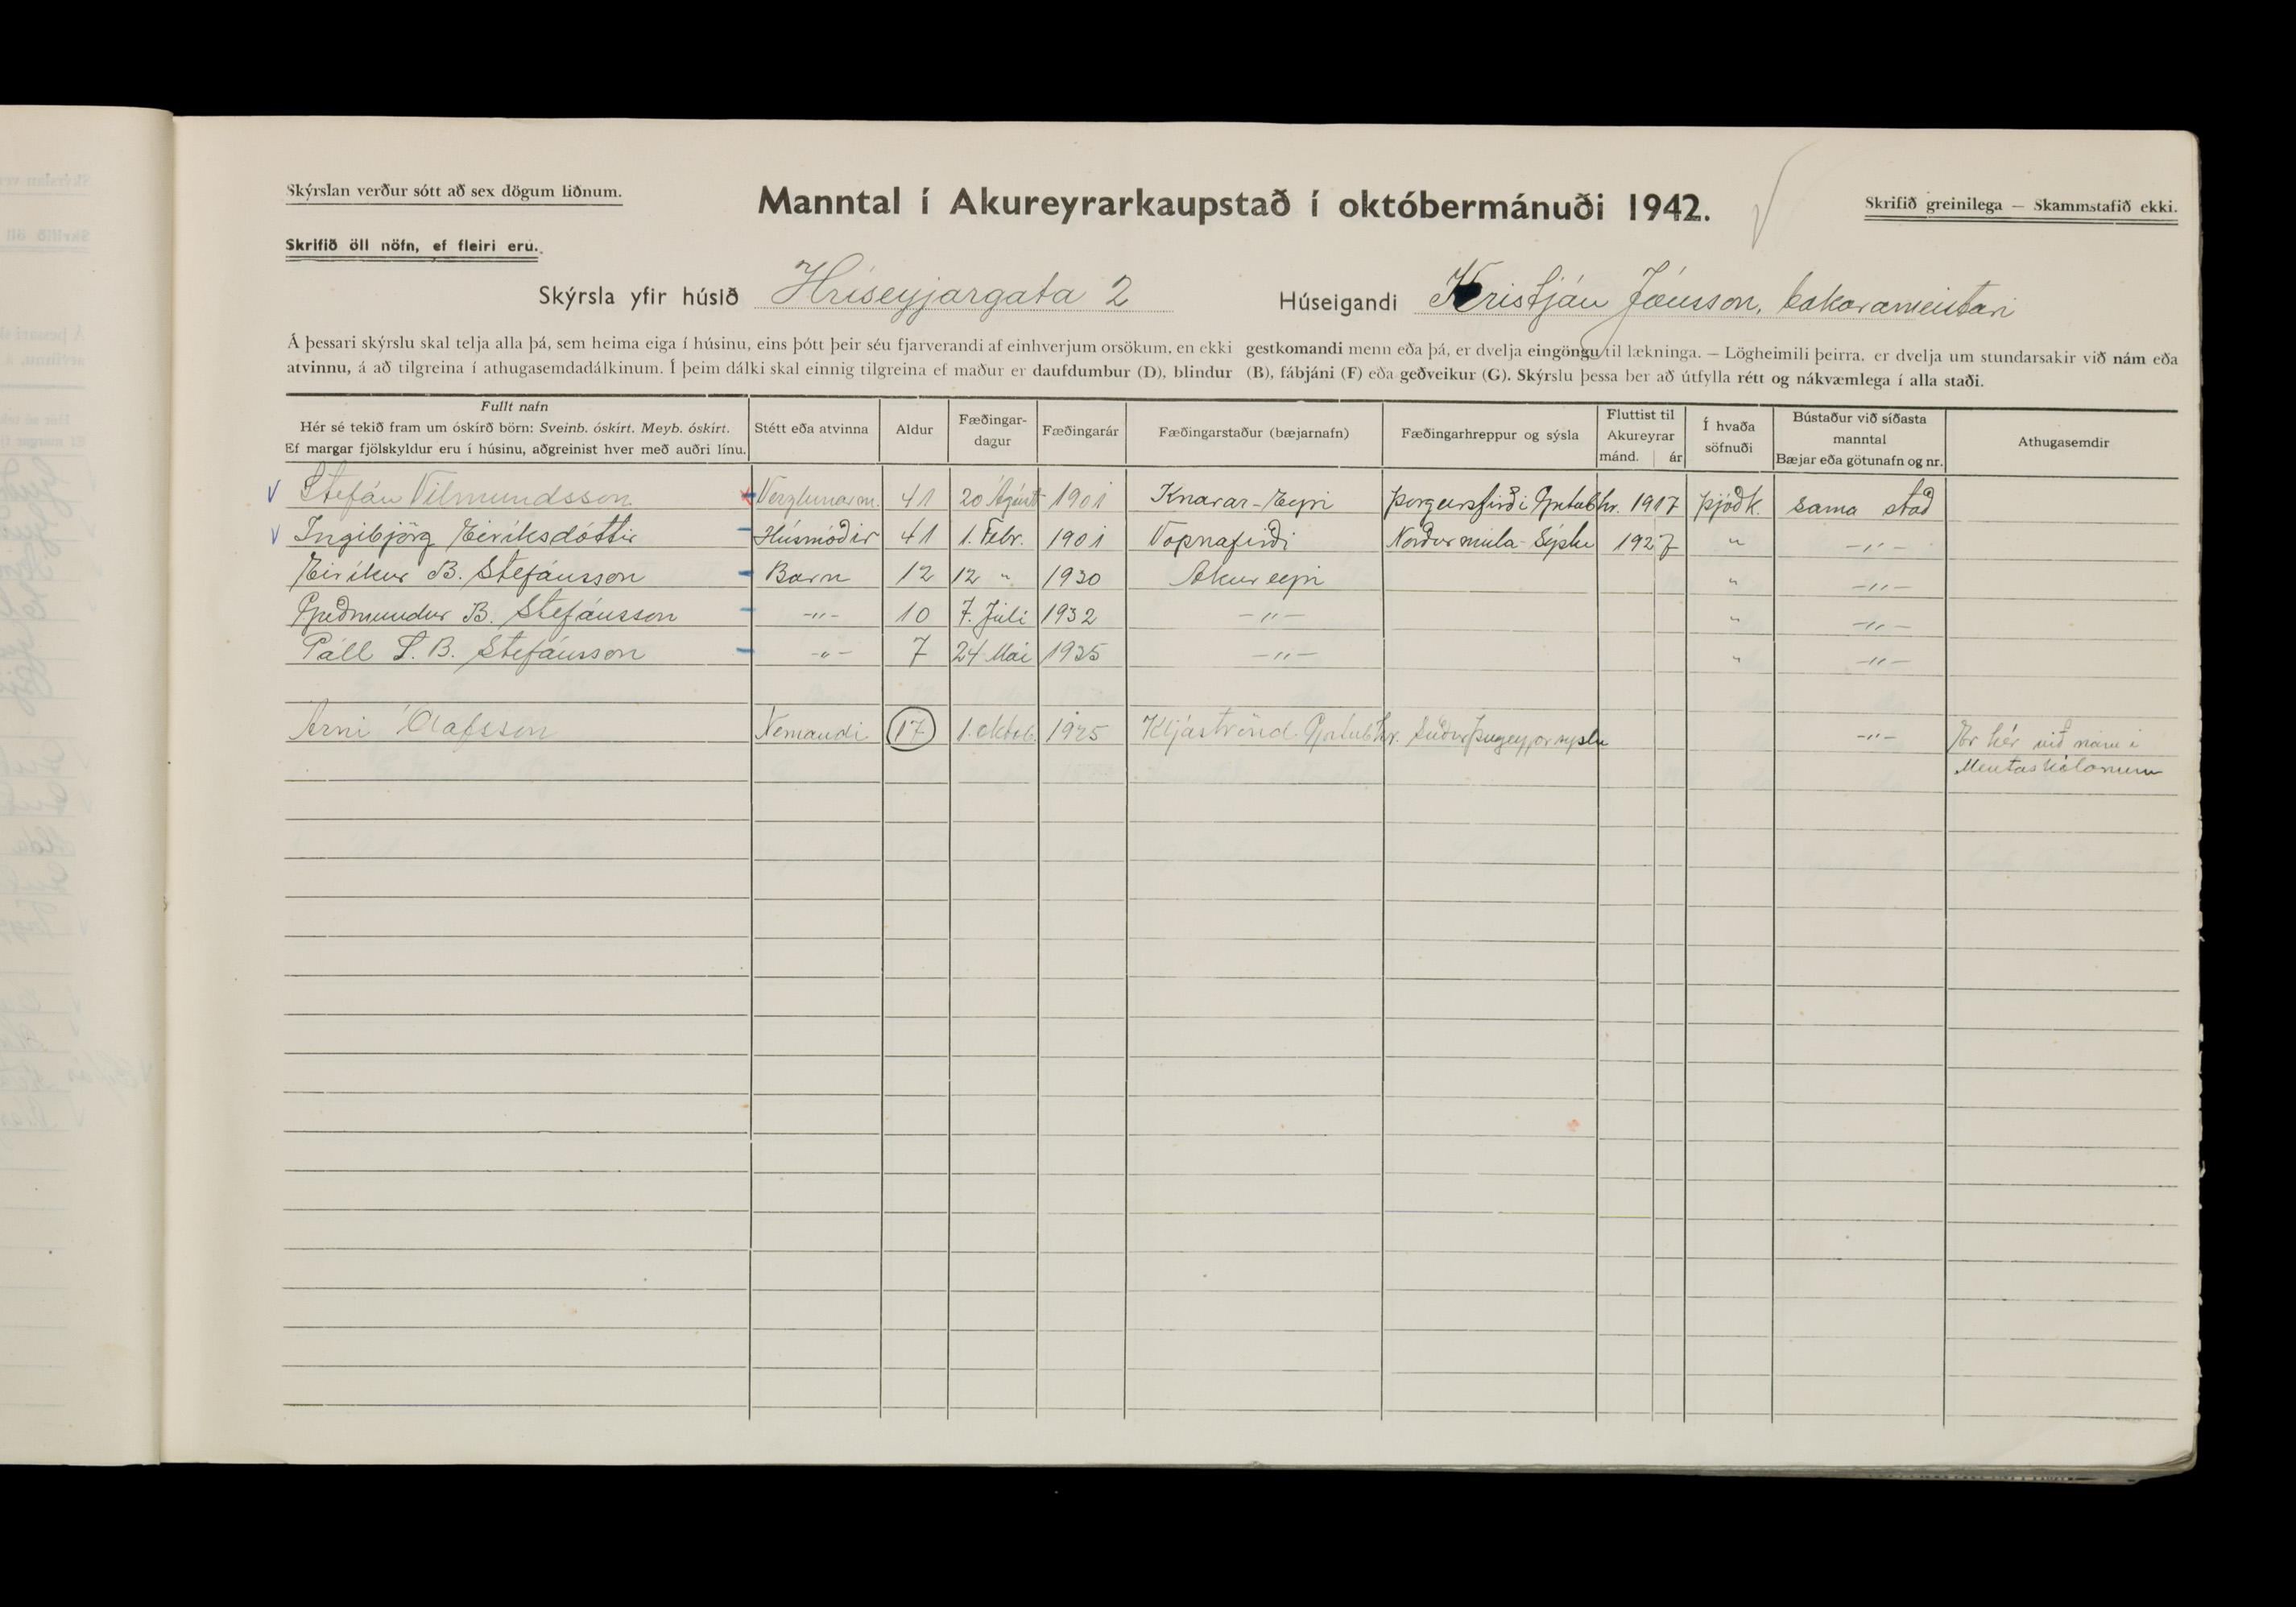 Skýrslan verður sótt að sex dögum liðnum.
Manntal í Akureyrarkaupstað í októbermánuði 1942.
Skrifið greinilega — Skammstafið ekki.
Skrifið öll nöfn, ef fleiri eru.
Skýrsla yfir húsið Hríseyjargata 2 Húseigandi Kristján Jónsson, bakarameistari
Á þessari skýrslu skal telja alla þá, sem heima eiga í húsinu, eins þótt þeir séu fjarverandi af einhverjum orsökum, en ekki gestkomandi menn eða þá, er dvelja eingöngu til lækninga. — Lögheimili þeirra, er dvelja um stundarsakir við nám eða
atvinnu, á að tilgreina í athugasemdadálkinum. Í þeim dálki skal einnig tilgreina ef maður er daufdumbur (D), blindur (B), fábjáni (F) eða geðveikur (G). Skýrslu þessa ber að útfylla rétt og nákvæmlega í alla staði.
Fullt nafn
Hér sé tekið fram um óskírð börn: Sveinb. óskírt. Meyb. óskírt.
Ef margar fjölskyldur eru í húsinu, aðgreinist hver með auðri línu.
Stétt eða atvinna
Aldur
Fæðingar-
dagur
Fæðingarár
Fæðingarstaður (bæjarnafn)
Fæðingarhreppur og sýsla
Fluttist til
Akureyrar
mánd. ár
Í hvaða
söfnuði
Bústaður við síðasta
manntal
Bæjar eða götunafn og nr.
Athugasemdir
Stefán Vilmundsson Verzlunarm. 41 20 Ágúst 1901 Knarar-Eyri Þorgeirsfirði Grýtubhr. 1917 þjóðk. sama stað
Ingibjörg Eiríksdóttir Húsmóðir 41 1. Febr. 1901 Vopnafirði Norðurmúla-Sýslu 1927 " —"—
Eiríkur B. Stefánsson Barn 12 12 " 1930 Akureyri " —"—
B. Stefánsson —"— 10 7. Júlí 1932 —"— " —"—
Páll S. B. Stefánsson —"— 7 24 Mai 1935 —"— " —"—
Árni Ólafsson Nemandi 17 1. oktob. 1925 Kljáströnd Grýtubhr. Suðurþingeyjarsýslu —"— Er hér við nám í
Mentaskólanum